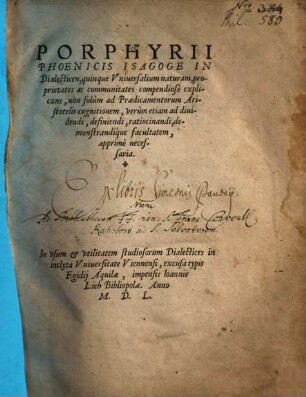 Phil. 580
PORPHYRII
PHOENICIS ISAGOGE IN
Dialecticen, quinque Vniuersalium naturam, pro-
prietates ac communitates compendiosè expli-
cans, non solùm ad Prædicamentorum Ari-
stotelis cognitionem, verùm etiam ad diui-
dendi, definiendi, ratiocinandi, de-
monstrandique facultatem,
apprimè neces-
saria.
Ex libris Simonis
nunc
In vsum & vtilitatem studiosorum Dialectices in
inclyta Vniuersitate Viennensi, excusa typis
Egidij Aquilæ, impensis Ioannis
Lieb Bibliopolæ. Anno
M. D. L.